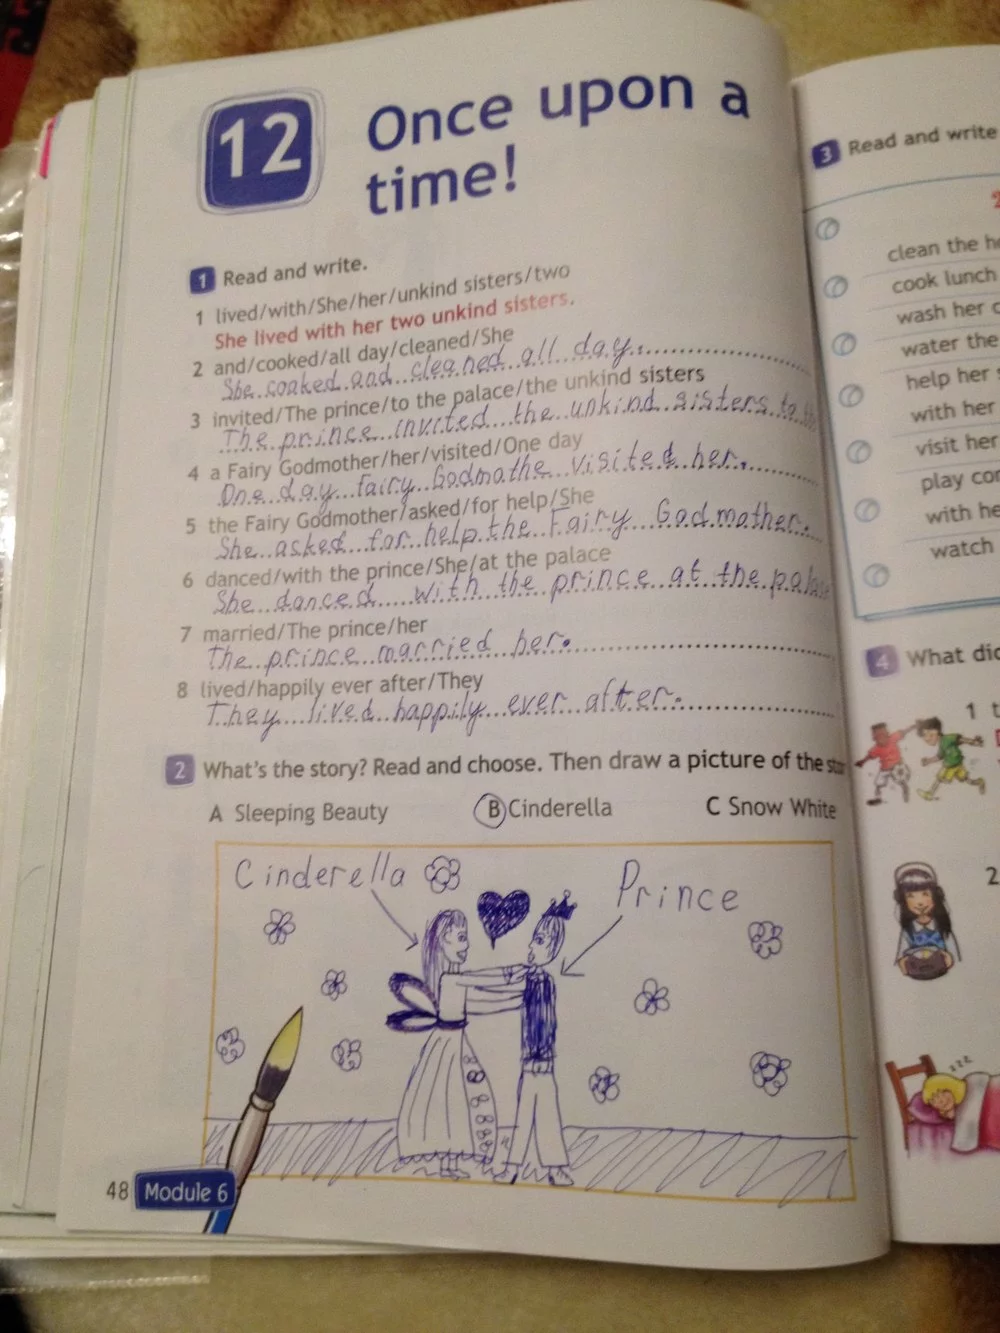 12
Once upon a
time!
1 Read and write.
1 lived/with/She/her/unkind sisters/two
She lived with her two unkind sisters.
2 and/cooked/all day/cleaned/She
She cooked and cleaned all day.
3 invited/The prince/to the palace/the unkind sisters
The prince invited the unkind sisters to
4 a Fairy Godmother/her/visited/One day
One day fairy Godmothe visited her.
5 the Fairy Godmother/asked/for help/She
She asked for help the Fairy Godmother.
6 danced/with the prince/She/at the palace
She danced with the prince at the palace
7 married/The prince/her
The prince married her.
8 lived/happily ever after/They
They lived happily ever after.
2 What's the story? Read and choose. Then draw a picture of the
A Sleeping Beauty B Cinderella C Snow White
Cinderella Prince
48 Module 6
3 Read and write
clean the
cook lunch
wash her
water the
help her
with her
visit her
play
with
watch
4 What
1
2
zzz